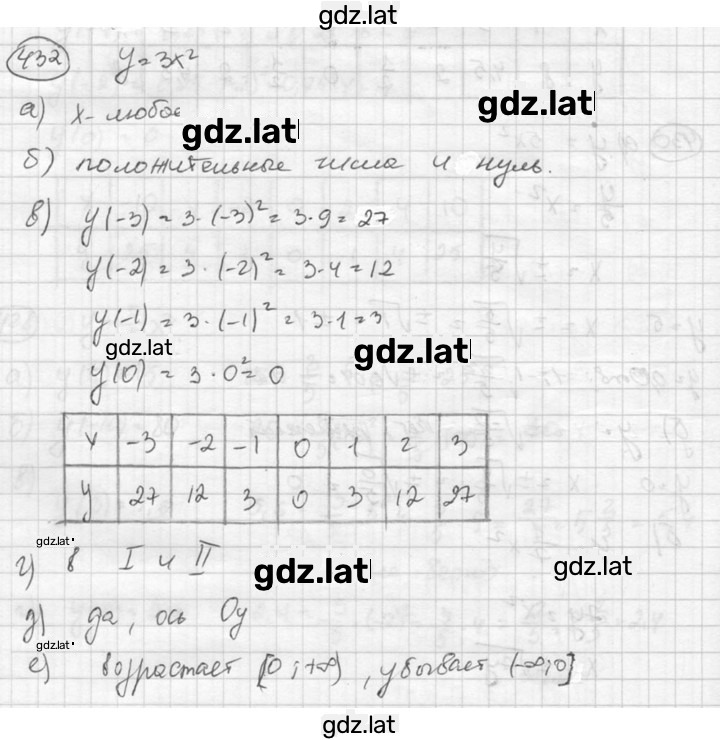 gdz.lat
432 y = 3x²
gdz.lat
а) x - любое
gdz.lat
б) положительные числа и нуль.
в) y(-3) = 3·(-3)² = 3·9 = 27
y(-2) = 3·(-2)² = 3·4 = 12
y(-1) = 3·(-1)² = 3·1 = 3
gdz.lat gdz.lat
y(0) = 3·0² = 0
x -3 -2 -1 0 1 2 3
y 27 12 3 0 3 12 27
gdz.lat
г) в I и II
gdz.lat gdz.lat
д) да, ось Oy
gdz.lat
е) возрастает [0; +∞), убывает (-∞; 0]
gdz.lat